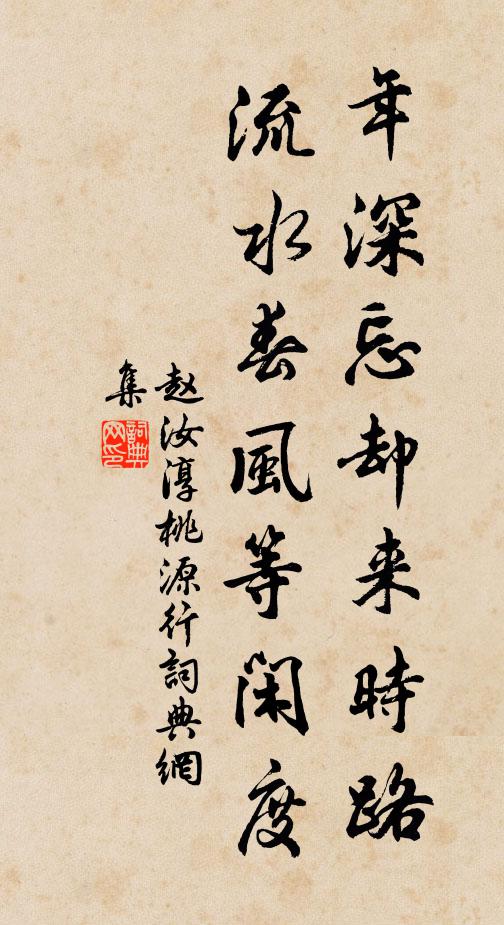 年深忘却来時路
流水春風等閑度
赵汝淳桃源行詞典網
集
詞典网印